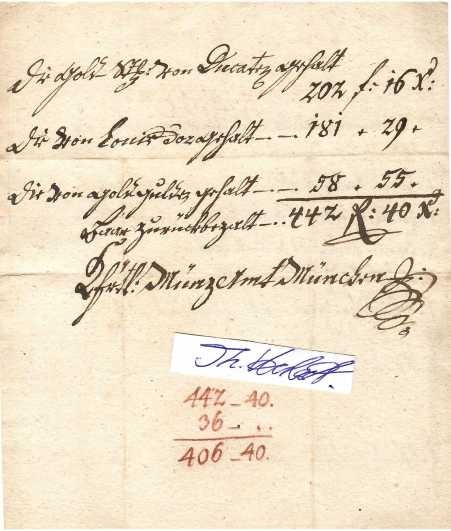 Die Gold Stk: von Ducaten gehalt
202 f: 16 X:
Die von Louis dor gehalt — — 181 . 29 .
Die von goldgulden gehalt — — 58 . 55 .
Baar zurückbezalt — .. 442 f: 40 X:
MünzAmt München
Th.
442 — 40.
36 — . .
406 — 40.